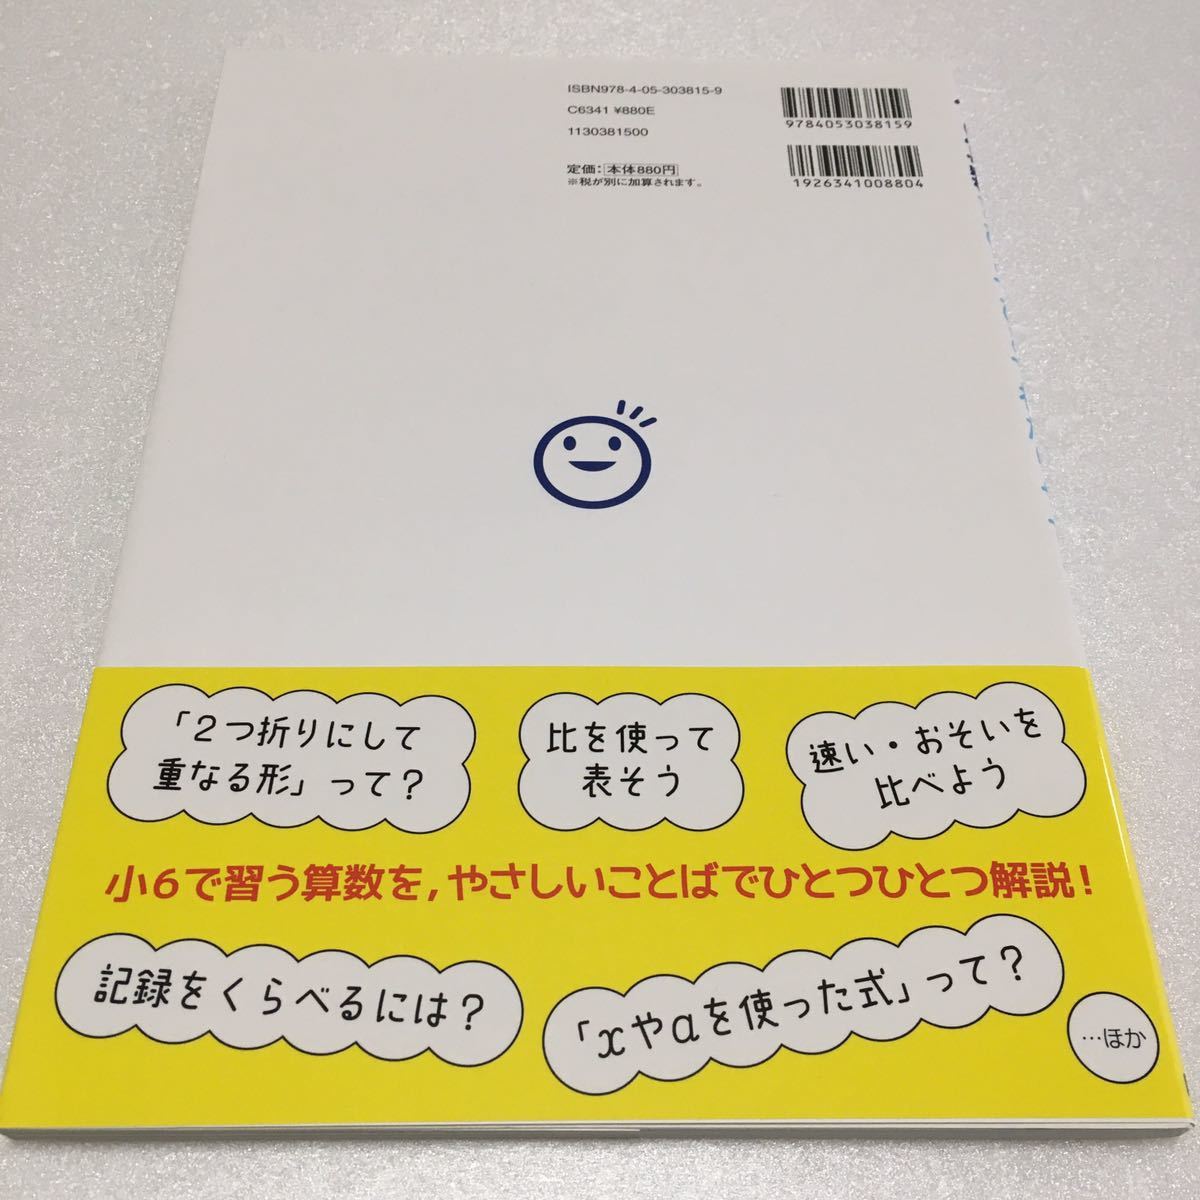 ISBN978-4-05-303815-9
C6341 ¥880E
1130381500
定価：本体880円
※税が別に加算されます。
9784053038159
1926341008804
「2つ折りにして
重なる形」って？
比を使って
表そう
速い・おそいを
比べよう
小6で習う算数を,やさしいことばでひとつひとつ解説！
記録をくらべるには？
「xやaを使った式」って？
…ほか